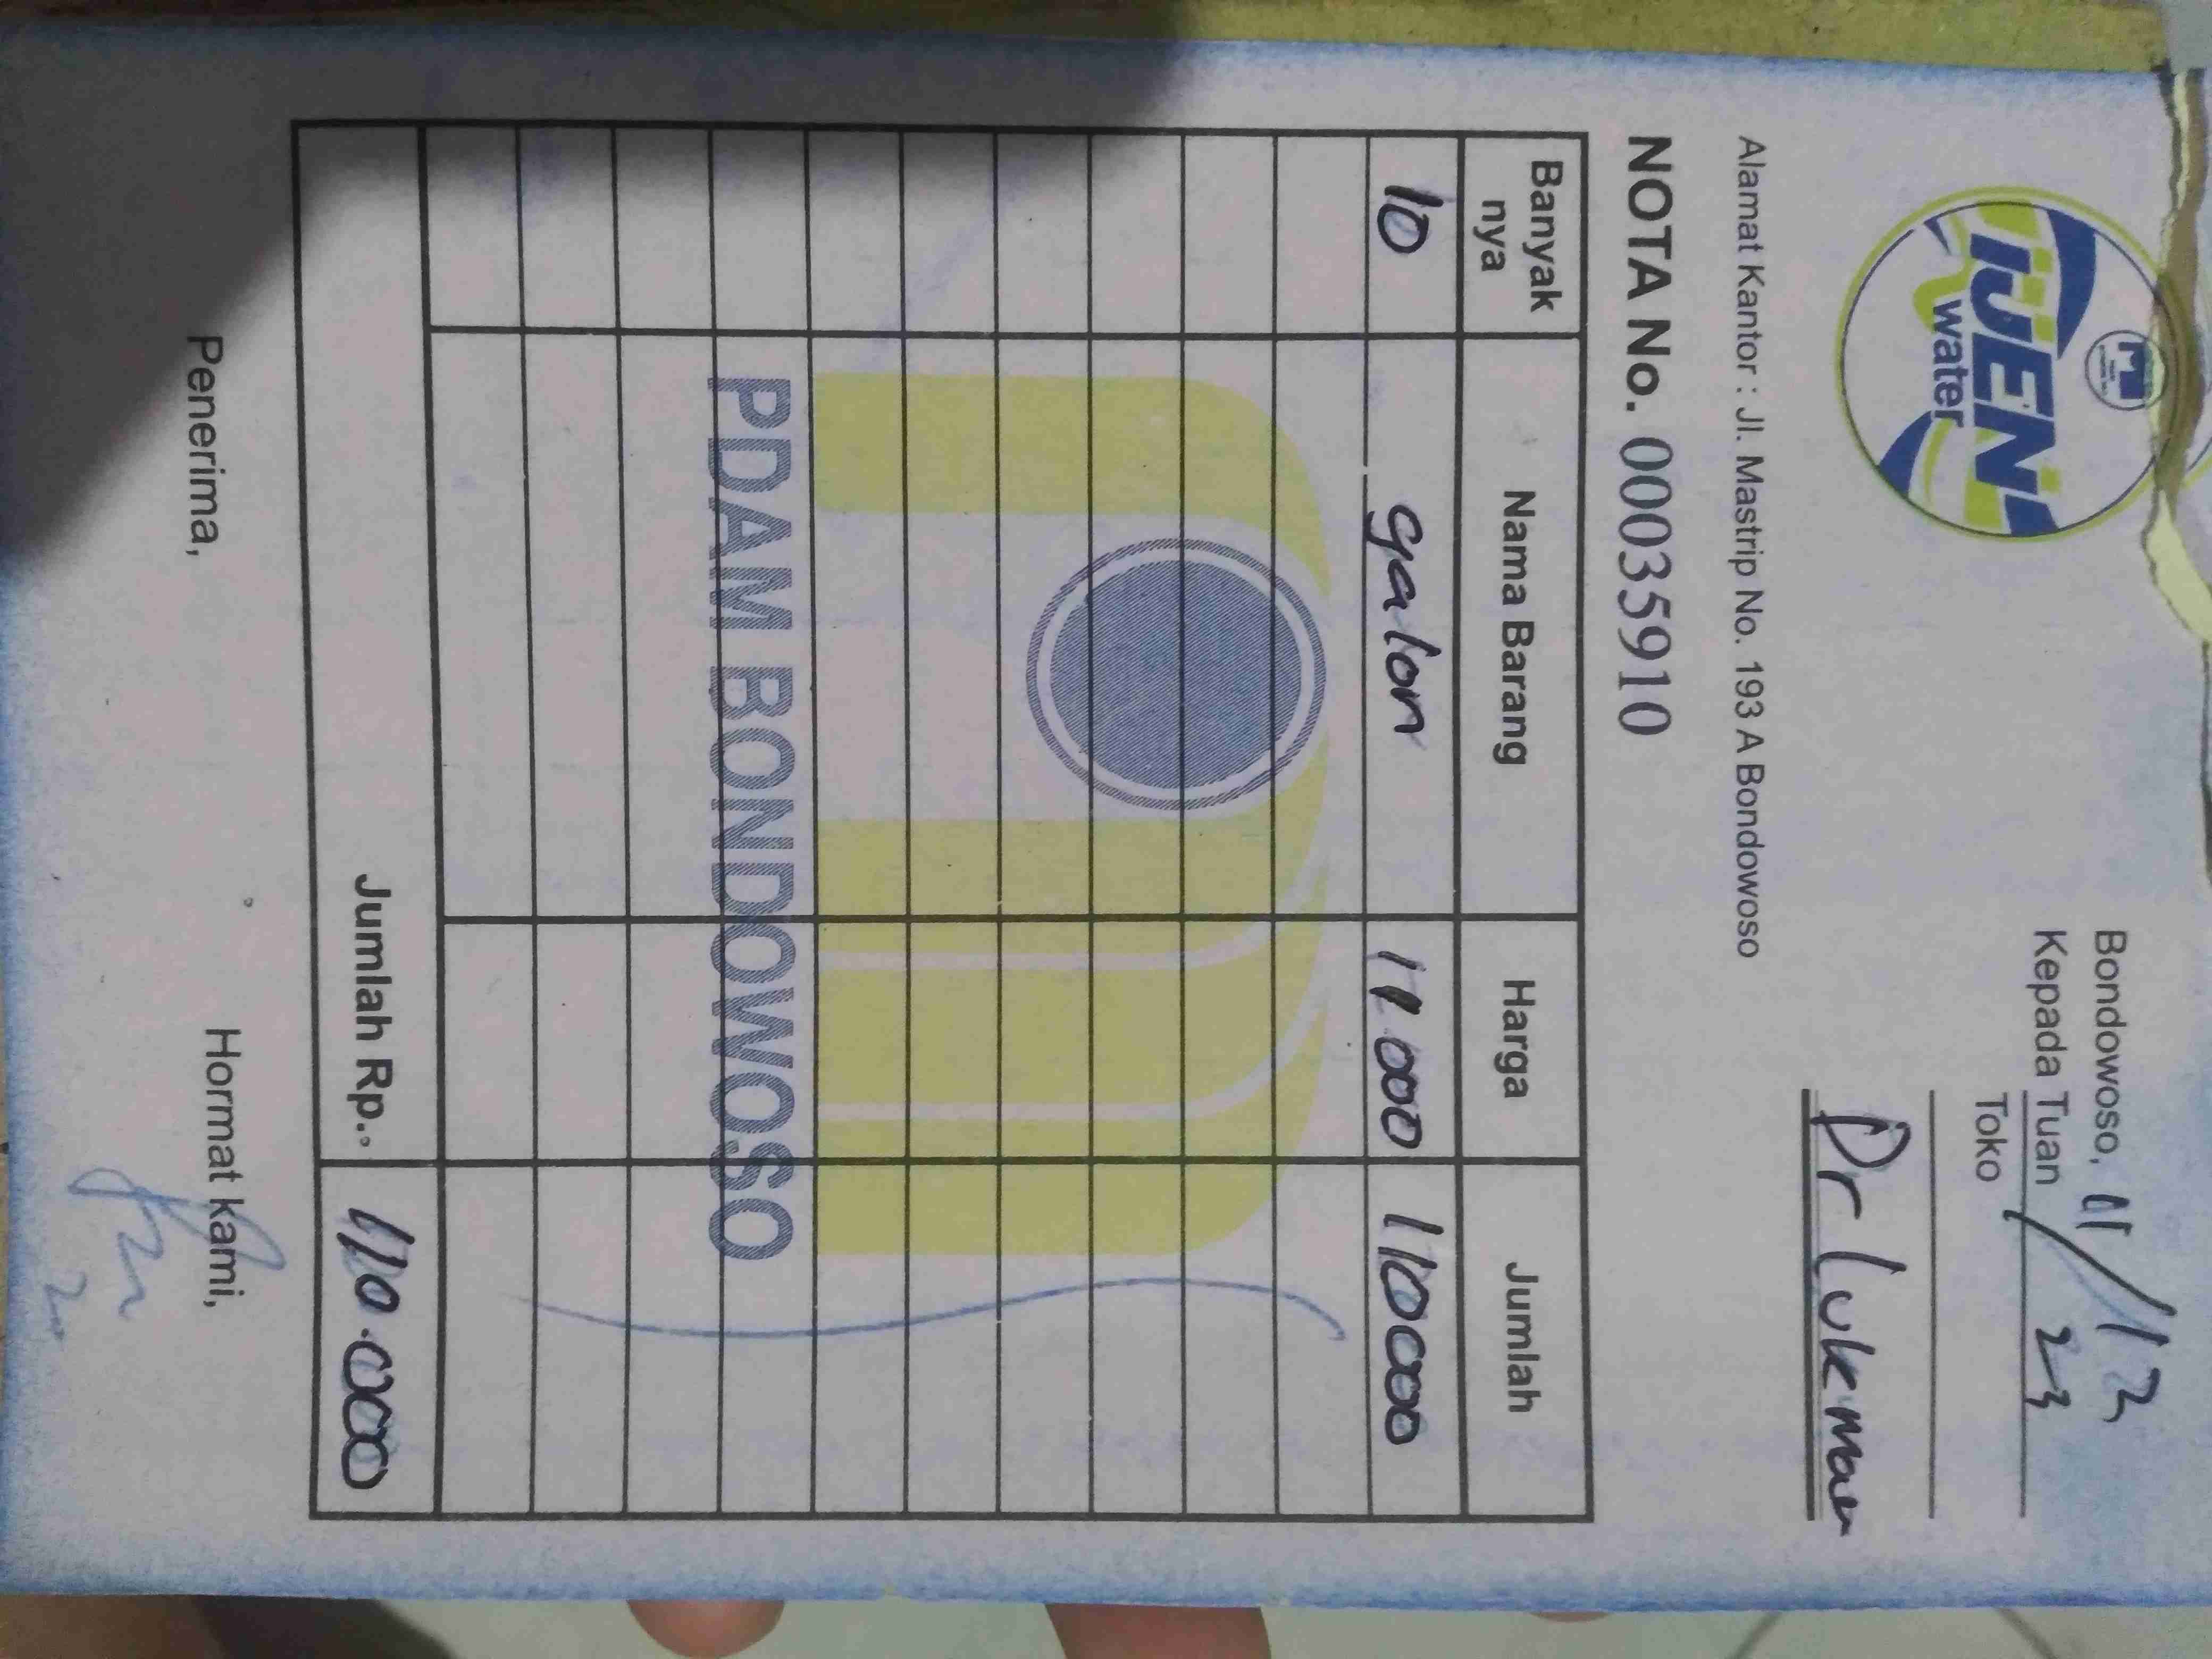 IJEN
water
Bondowoso, 11/12 23
Kepada Tuan
Toko
Dr lukman
Alamat Kantor : Jl. Mastrip No. 193 A Bondowoso
NOTA No. 00035910
Banyak nya Nama Barang Harga Jumlah
10 galon 11 000 110000
PDAM BONDOWOSO
Jumlah Rp. 110.000
Penerima, Hormat kami,